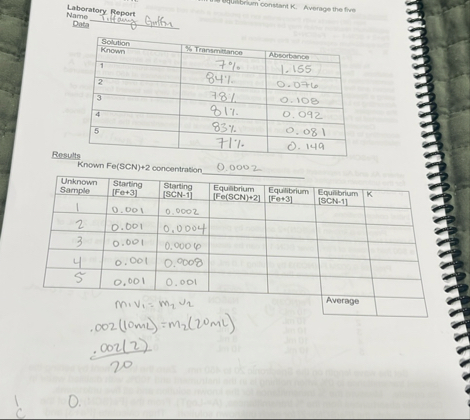 equilibrium constant K. Average the five
Laboratory Report
Name Tiffany
Data
Solution % Transmittance Absorbance
Known 7% 1.155
1 84% 0.076
2 78% 0.108
3 81% 0.092
4 83% 0.081
5 71% 0.149
Results
Known Fe(SCN)+2 concentration 0.0002
Unknown Sample Starting [Fe+3] Starting [SCN-1] Equilibrium [Fe(SCN)+2] Equilibrium [Fe+3] Equilibrium [SCN-1] K
1 0.001 0.0002
2 0.001 0.0004
3 0.001 0.0006
4 0.001 0.0008
5 0.001 0.001
Average
m1v1 = m2v2
.002(10mL) = m2(20mL)
.002(2)
20
0.